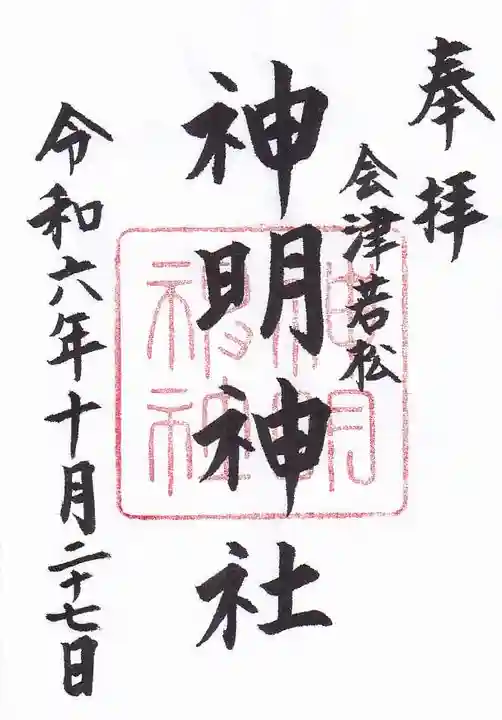 奉拝
会津若松
神明神社
神明神社
令和六年十月二十七日